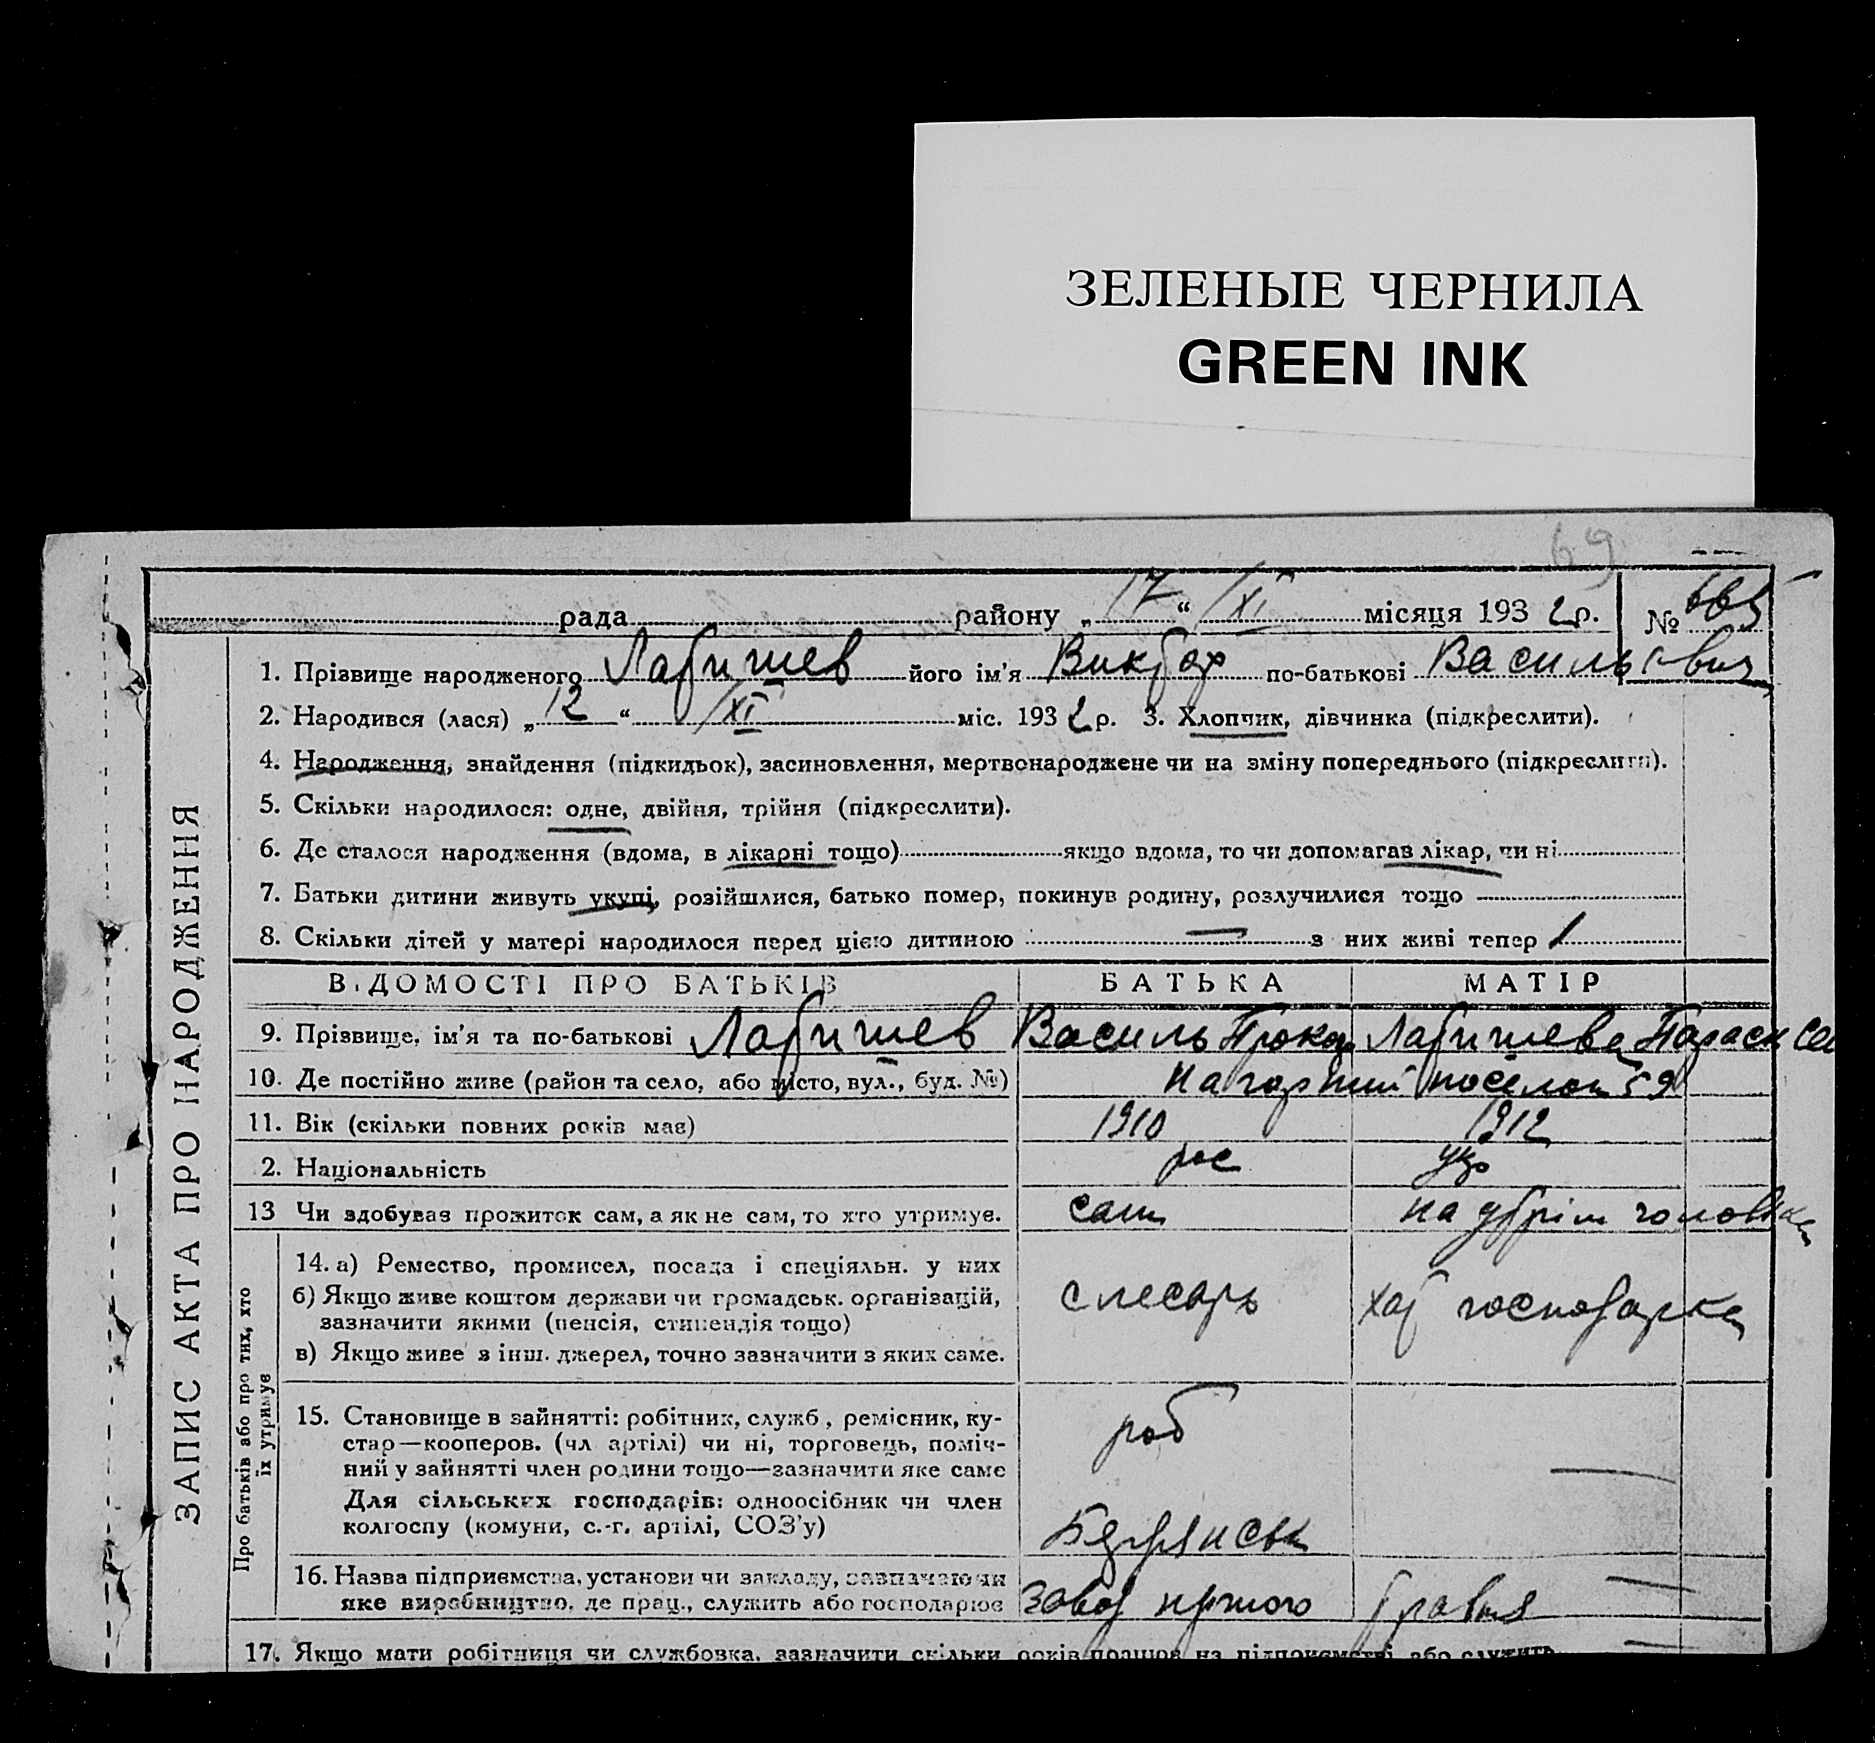 ЗЕЛЕНЫЕ ЧЕРНИЛА
GREEN INK
69
рада района „17“ /XI місяця 1932р. № 665
1. Прізвище народженого його ім'я Виктор по-батькові Василь евич
2. Народився (лася) „12“ /XI міс. 1932р. 3. Хлопчик, дівчинка (підкреслити).
4. Народження, знайдення (підкидьок), засиновлення, мертвонароджене чи на зміну попереднього (підкреслити).
5. Скільки народилося: одне, двійня, трійня (підкреслити).
6. Де сталося народження (вдома, в лікарні тощо) якщо вдома, то чи допомагав лікар, чи ні
7. Батьки дитини живуть укупі, розійшлися, батько помер, покинув родину, розлучилися тощо
8. Скільки дітей у матері народилося перед цією дитиною — з них живі тепер 1
ВІДОМОСТІ ПРО БАТЬКІВ БАТЬКА МАТІР
9. Прізвище, ім'я та по-батькові Василь Параск
10. Де постійно живе (район та село, або місто, вул., буд. №) Нагорний поселок 59
11. Вік (скільки повних років має) 1910 1912
2. Національність рос укр
13 Чи здобуває прожиток сам, а як не сам, то хто утримує. сам на утрім чоловіка
14. а) Ремество, промисел, посада і спеціяльн. у них
б) Якщо живе коштом держави чи громадськ. організацій,
зазначити якими (пенсія, стипендія тощо) слесарь хат господарка
в) Якщо живе з інш. джерел, точно зазначити з яких саме.
15. Становище в зайнятті: робітник, служб., ремісник, ку-
стар—кооперов. (чл артілі) чи ні, торговець, поміч- роб
ний у зайнятті член родини тощо—зазначити яке саме
Для сільських господарів: одноосібник чи член
колгоспу (комуни, с.-г. артілі, СОЗ'у)
16. Назва підприємства, установи чи закладу, зазначаючи
яке виробництво, де прац., служить або господарює завод
17. Якщо мати робітниця чи службовка, зазначити скільки років працює на підприємстві або служить
ЗАПИС АКТА ПРО НАРОДЖЕННЯ
Про батьків або про тих, хто
їх утримує